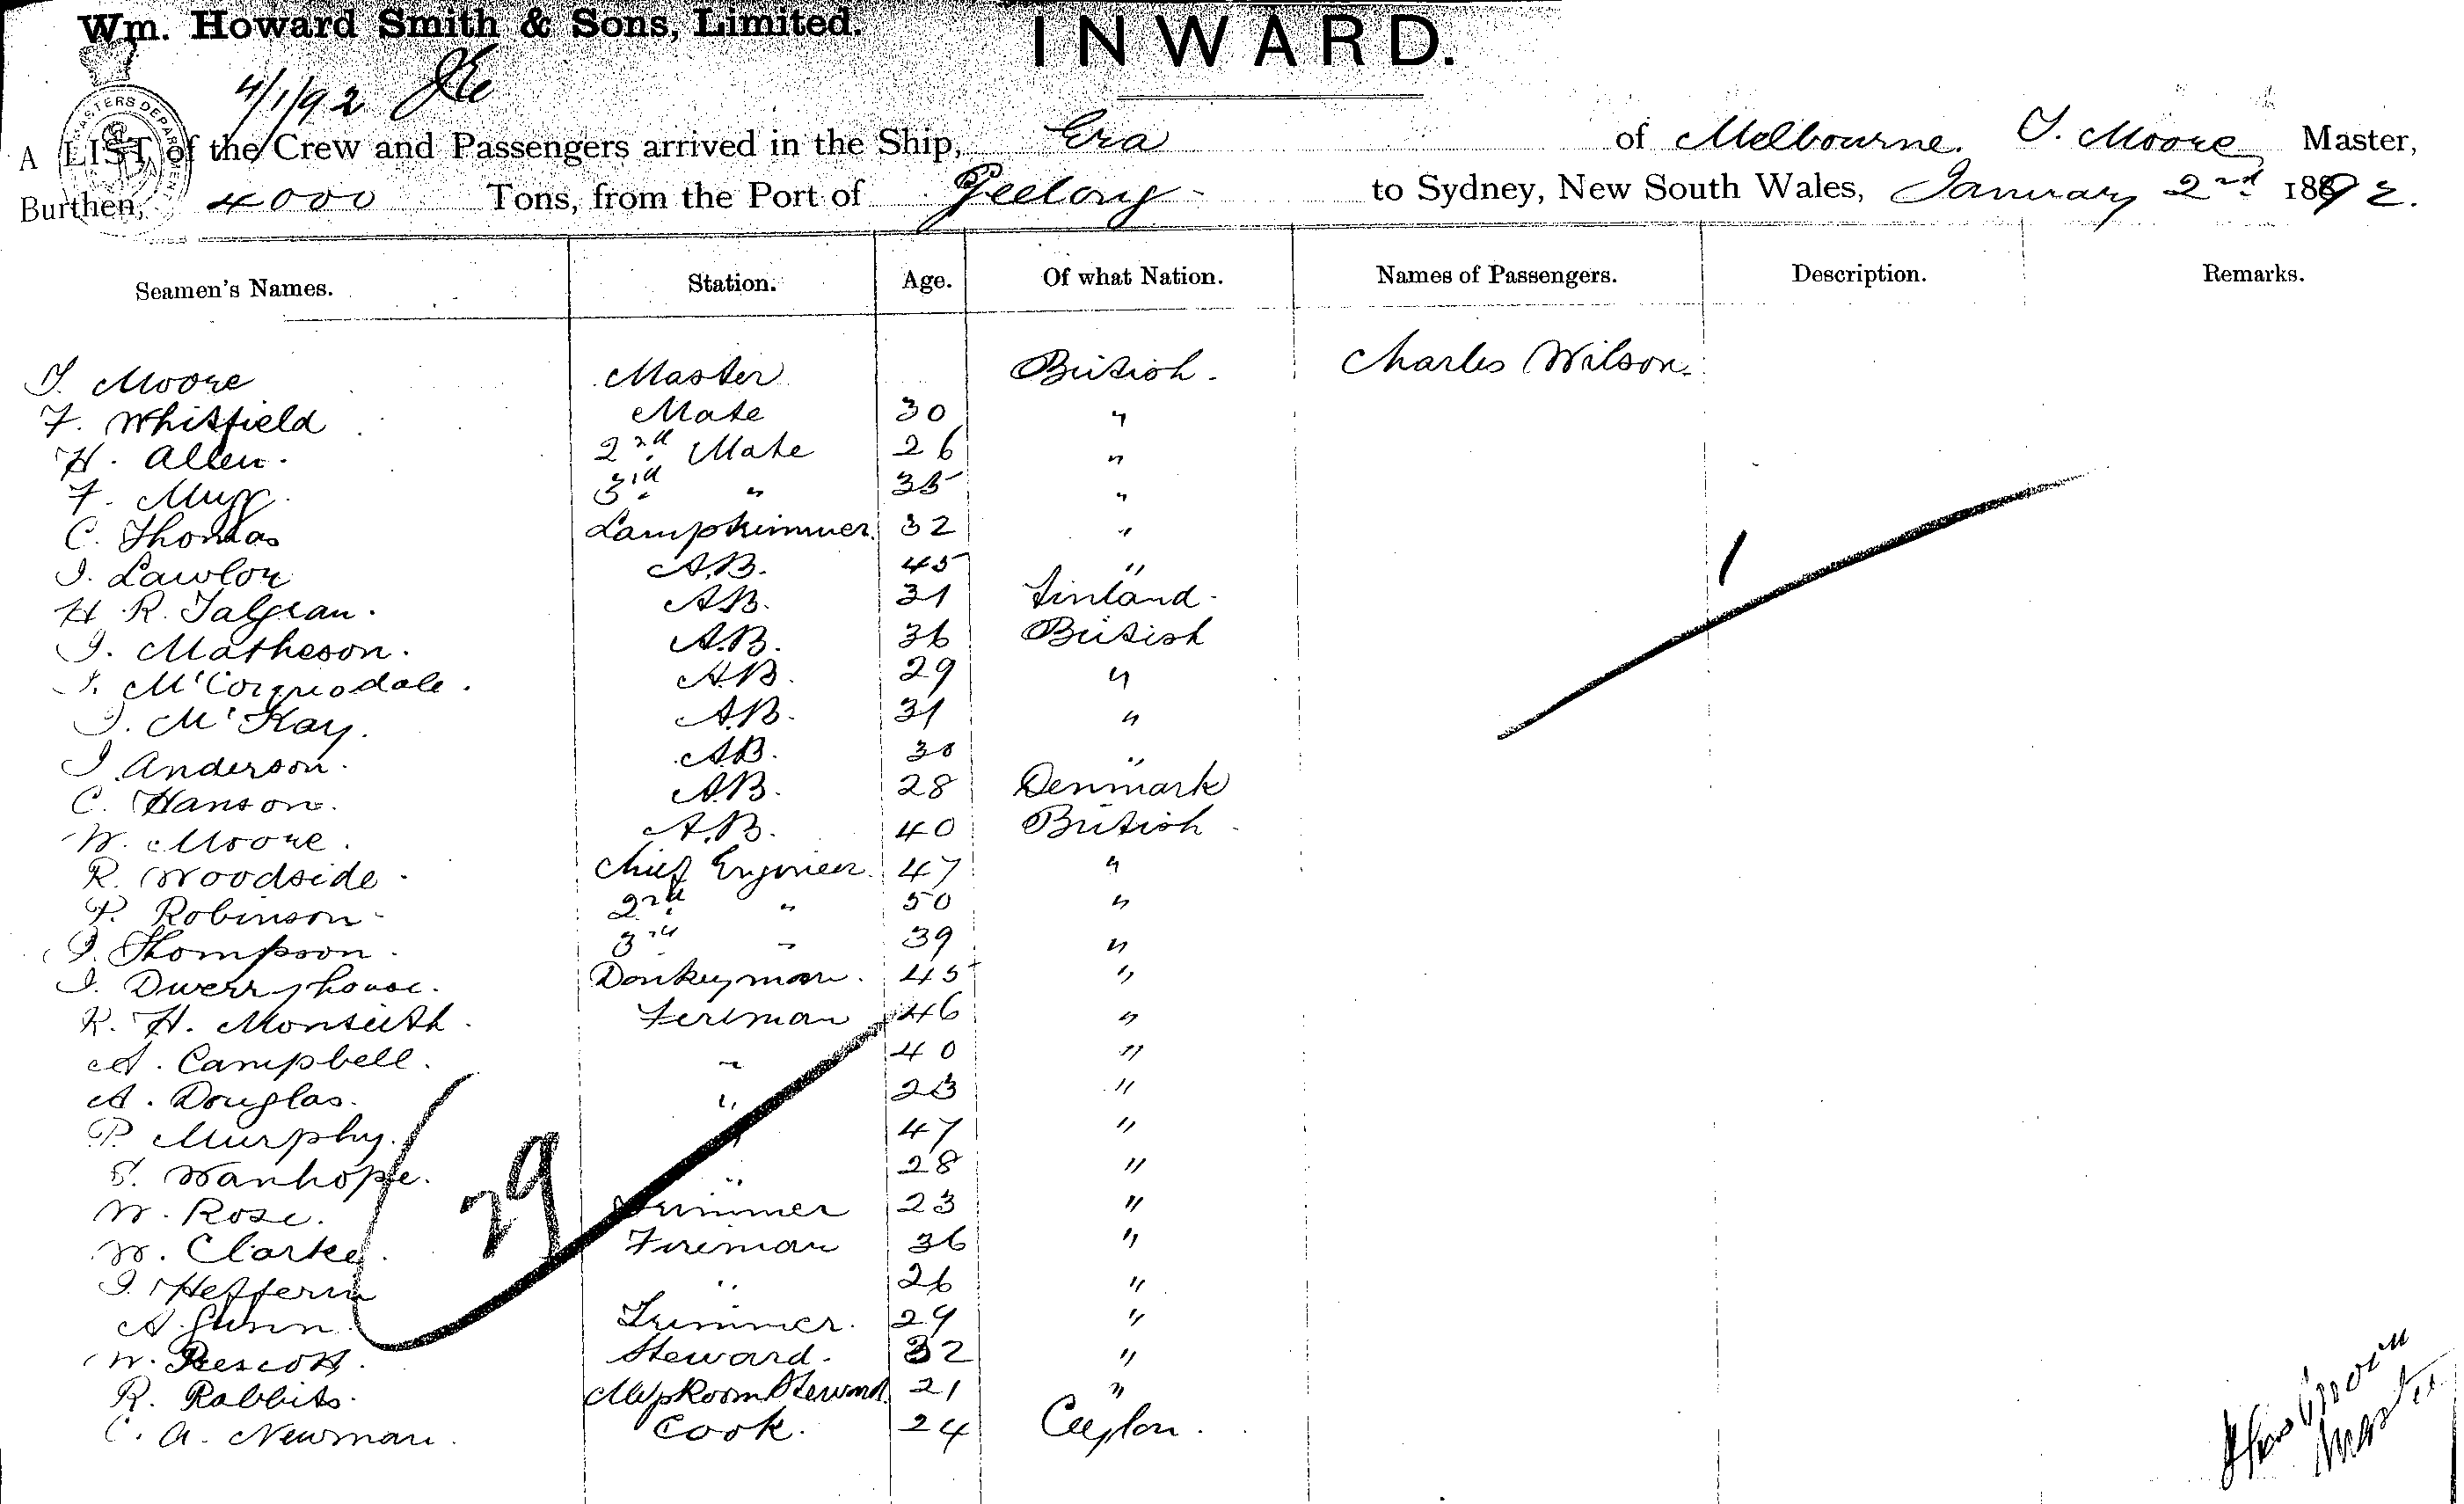 Wm. Howard Smith & Sons, Limited.
INWARD.
4/1/92
MASTERS DEPARTMEN
A LIST of the Crew and Passengers arrived in the Ship, Era of Melbourne. T. Moore Master,
Burthen, 4000 Tons, from the Port of Geelong to Sydney, New South Wales, January 2nd 1892.
Seamen's Names. Station. Age. Of what Nation. Names of Passengers. Description. Remarks.
T. Moore Master British. Charles Wilson.
F. Whitfield Mate 30 "
H. Allen. 2nd Mate 26 "
F. 3rd " 35 "
C. Thomas Lamptrimmer. 32 "
J. Lawlor A.B. 45 "
H. R. A.B. 31 Finland.
J. Matheson. A.B. 36 British
J. McCorquodale. A.B. 29 "
J. McKay. A.B. 31 "
J. Anderson. A.B. 30 "
C. Hanson. A.B. 28 Denmark
W. Moore. A.B. 40 British
R. Woodside. Chief Engineer. 47 "
P. Robinson 2nd " 50 "
J. Thompson. 3rd " 39 "
J. Dwerryhouse. Donkeyman. 45 "
R. H. Monteith. Fireman 46 "
A. Campbell. " 40 "
A. Douglas. " 23 "
P. Murphy. " 47 "
S. Wanhope. " 28 "
W. Rose. Trimmer 23 "
W. Clarke. Fireman 36 "
J. Heffern " 26 "
A. Gunn. Trimmer. 29 "
W. Prescott. Steward. 32 "
R. Rabbits. MessRoom Steward 21 "
C. A. Newman. Cook. 24 Ceylon.
29
1
Thos Moore
Master